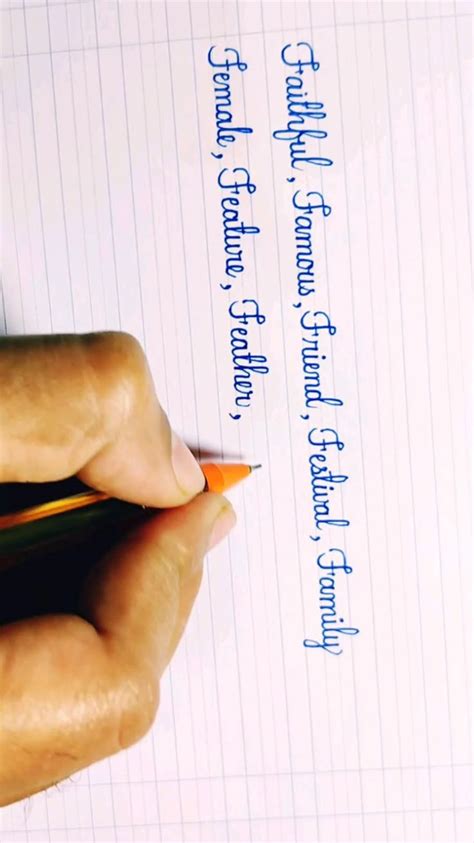 Faithful, Famous, Friend, Festival, Family
Female, Feature, Feather,